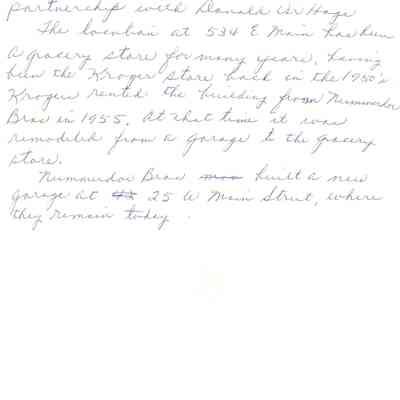 partnership with Donald Ver Hage
The location at 534 E Main has been
a grocery store for many years, having
been the Kroger store back in the 1950's
Kroger rented the building from Nummerdor
Bros in 1955. At that time it was
remodeled from a garage to the grocery
store.
Nummerdor Bros built a new
garage at 25 W Main Street, where
they remain today.